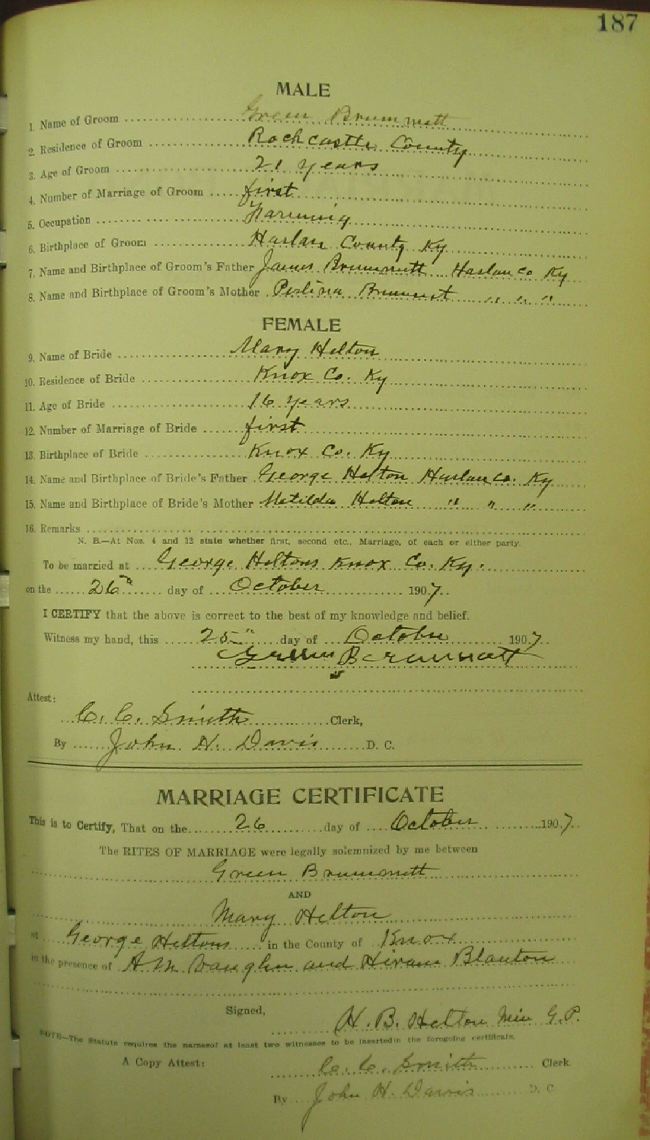 187
MALE
1. Name of Groom Green Brummett
2. Residence of Groom Rockcastle County
3. Age of Groom 21 years
4. Number of Marriage of Groom first
5. Occupation Farming
6. Birthplace of Groom Harlan County Ky
7. Name and Birthplace of Groom's Father James Brummett Harlan Co Ky
8. Name and Birthplace of Groom's Mother Brummett " " "
FEMALE
9. Name of Bride Mary Helton
10. Residence of Bride Knox Co. Ky
11. Age of Bride 16 years
12. Number of Marriage of Bride first
13. Birthplace of Bride Knox Co. Ky
14. Name and Birthplace of Bride's Father George Helton Harlan Co. Ky
15. Name and Birthplace of Bride's Mother Matilda Helton " " "
16. Remarks
N. B.—At Nos. 4 and 12 state whether first, second etc., Marriage, of each or either party.
To be married at George Heltons Knox Co. Ky.
on the 26th day of October 1907.
I CERTIFY that the above is correct to the best of my knowledge and belief.
Witness my hand, this 25" day of October 1907
Green Brummett
Attest:
C. C. Smith Clerk,
By John H. Davis D. C.
MARRIAGE CERTIFICATE
This is to Certify, That on the 26 day of October 1907.
The RITES OF MARRIAGE were legally solemnized by me between
Green Brummett
AND
Mary Helton
at George Heltons in the County of Knox
in the presence of A M Vaughn and Hiram Blanton
Signed,
H. B. Helton Min G. P.
NOTE—The Statute requires the names of at least two witnesses to be inserted in the foregoing certificate.
A Copy Attest: C. C. Smith Clerk
By John H. Davis D. C